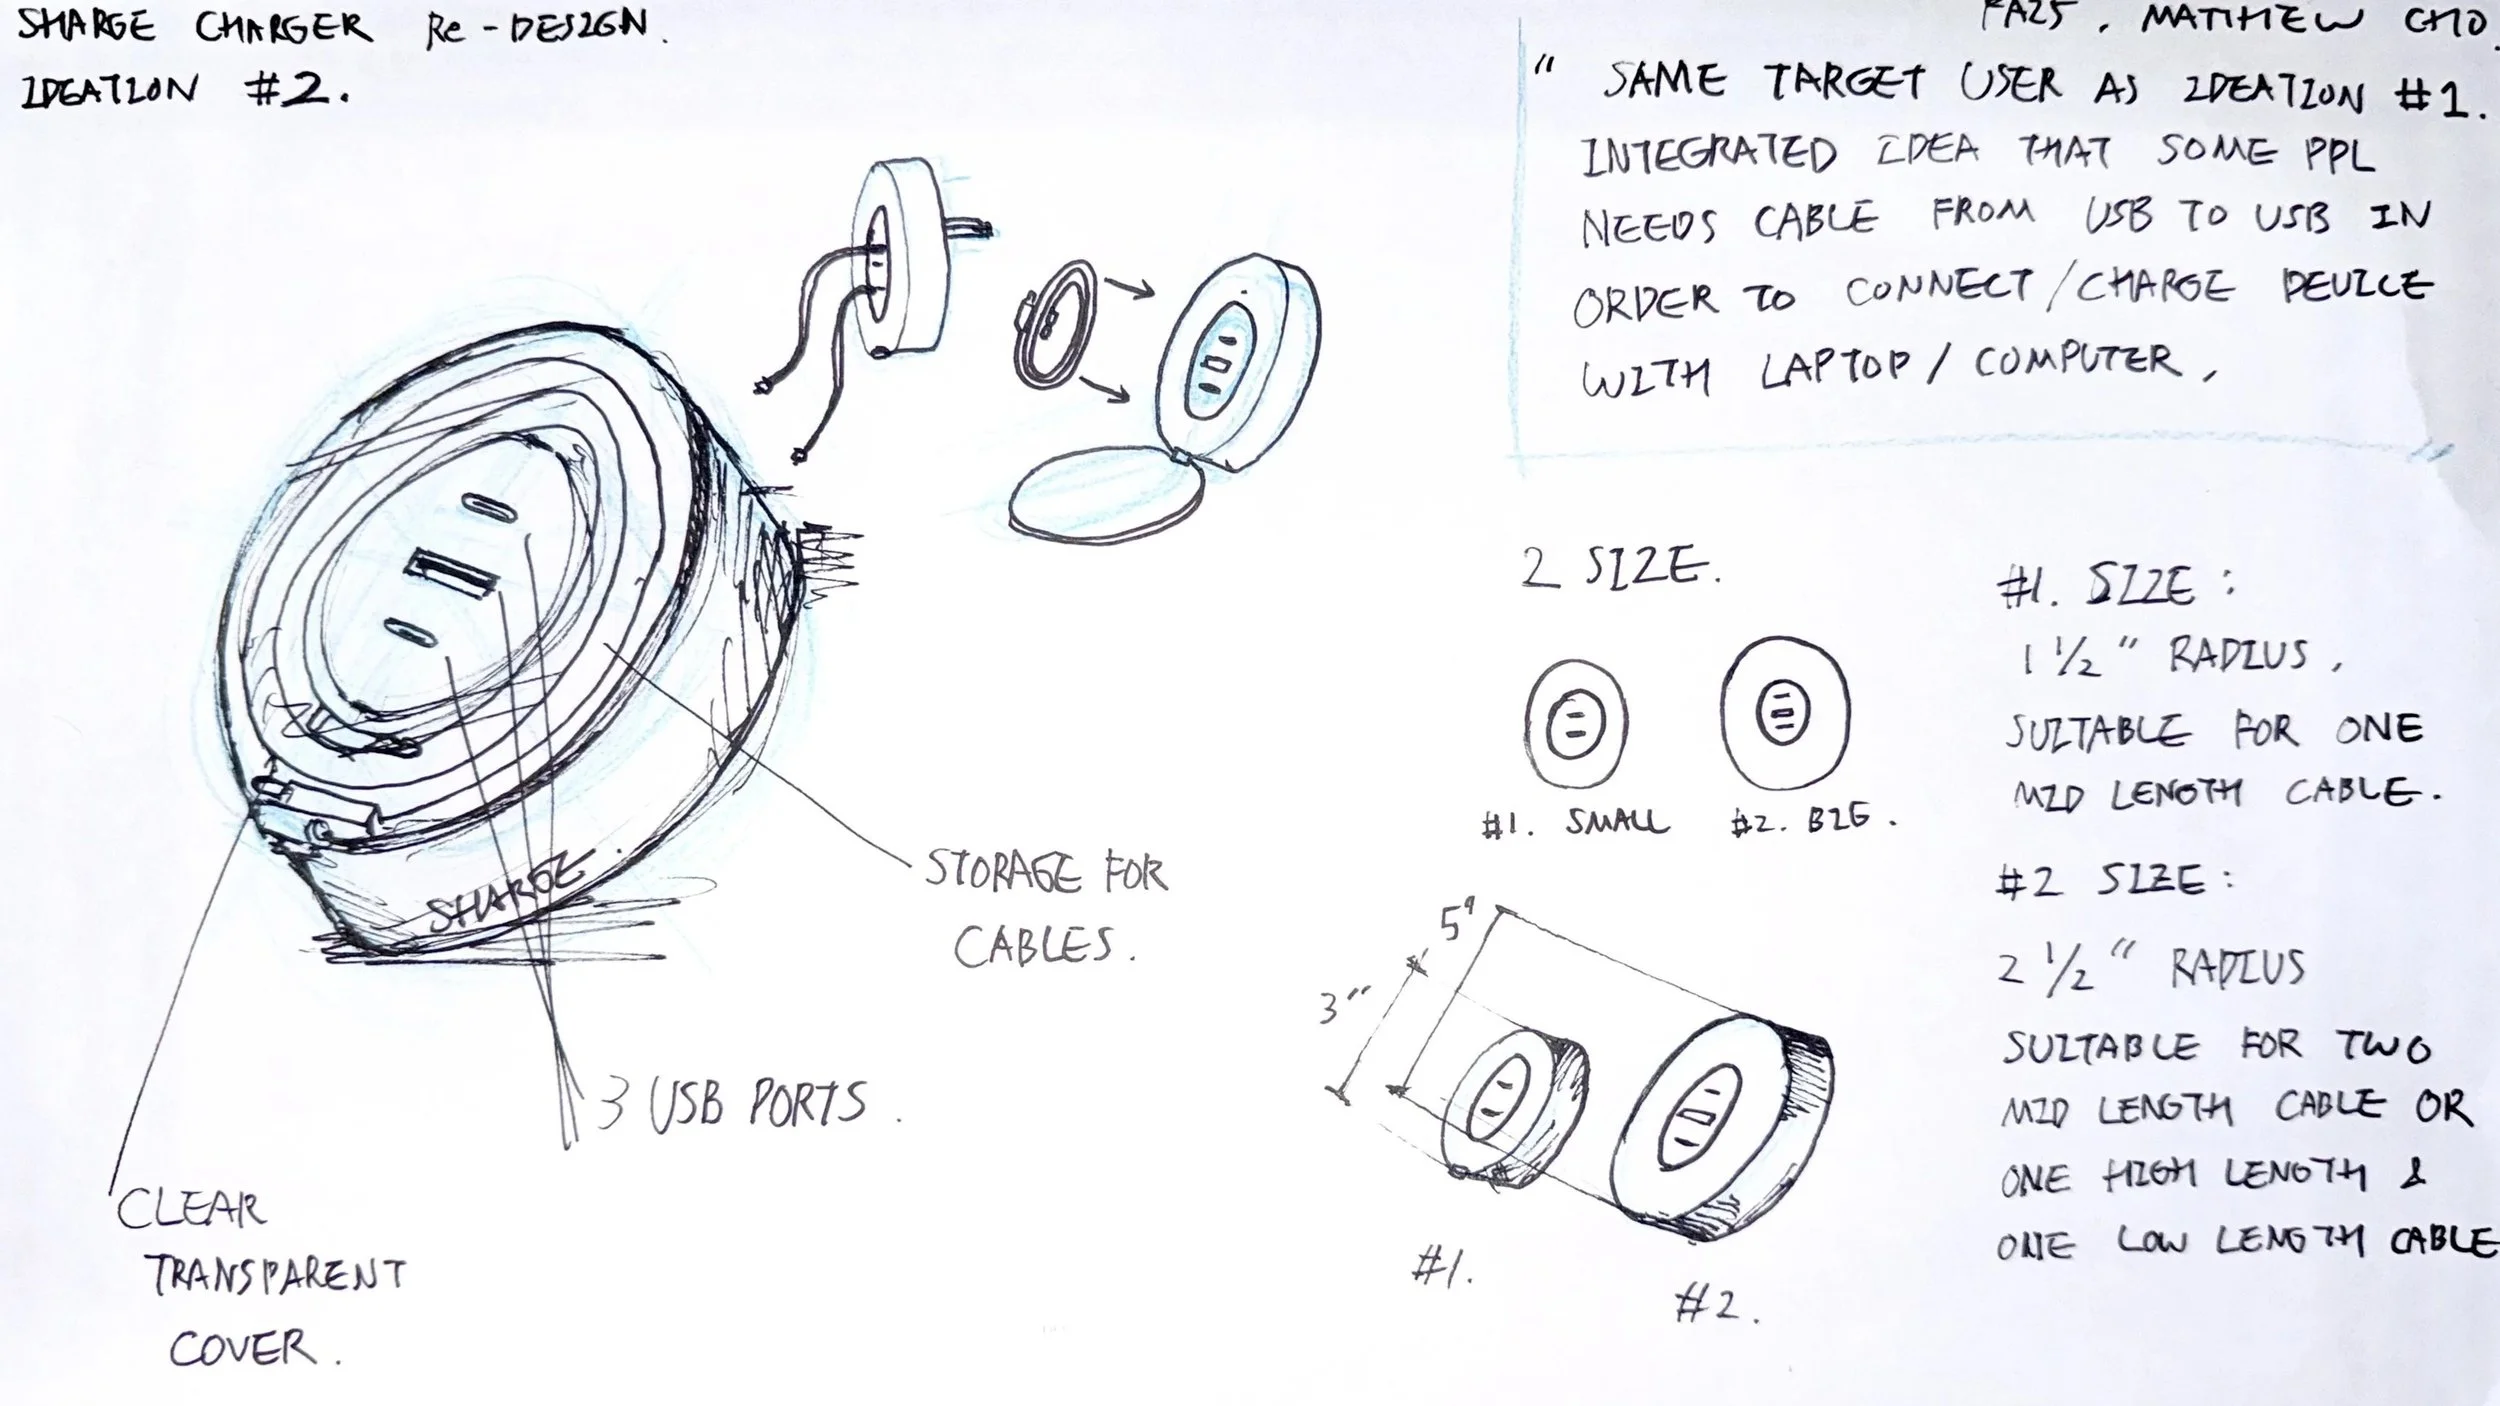 SHARGE CHARGER Re-DESIGN.
IDEATION #2.
FA25, MATTHEW CHO.
" SAME TARGET USER AS IDEATION #1.
INTEGRATED IDEA THAT SOME PPL
NEEDS CABLE FROM USB TO USB IN
ORDER TO CONNECT/CHARGE DEVICE
WITH LAPTOP/COMPUTER,
SHARGE.
STORAGE FOR
CABLES.
3 USB PORTS.
CLEAR
TRANSPARENT
COVER.
2 SIZE.
#1. SMALL
#2. BIG.
5"
3"
#1.
#2.
#1. SIZE:
1 1/2" RADIUS,
SUITABLE FOR ONE
MID LENGTH CABLE.
#2 SIZE:
2 1/2" RADIUS
SUITABLE FOR TWO
MID LENGTH CABLE OR
ONE HIGH LENGTH &
ONE LOW LENGTH CABLE